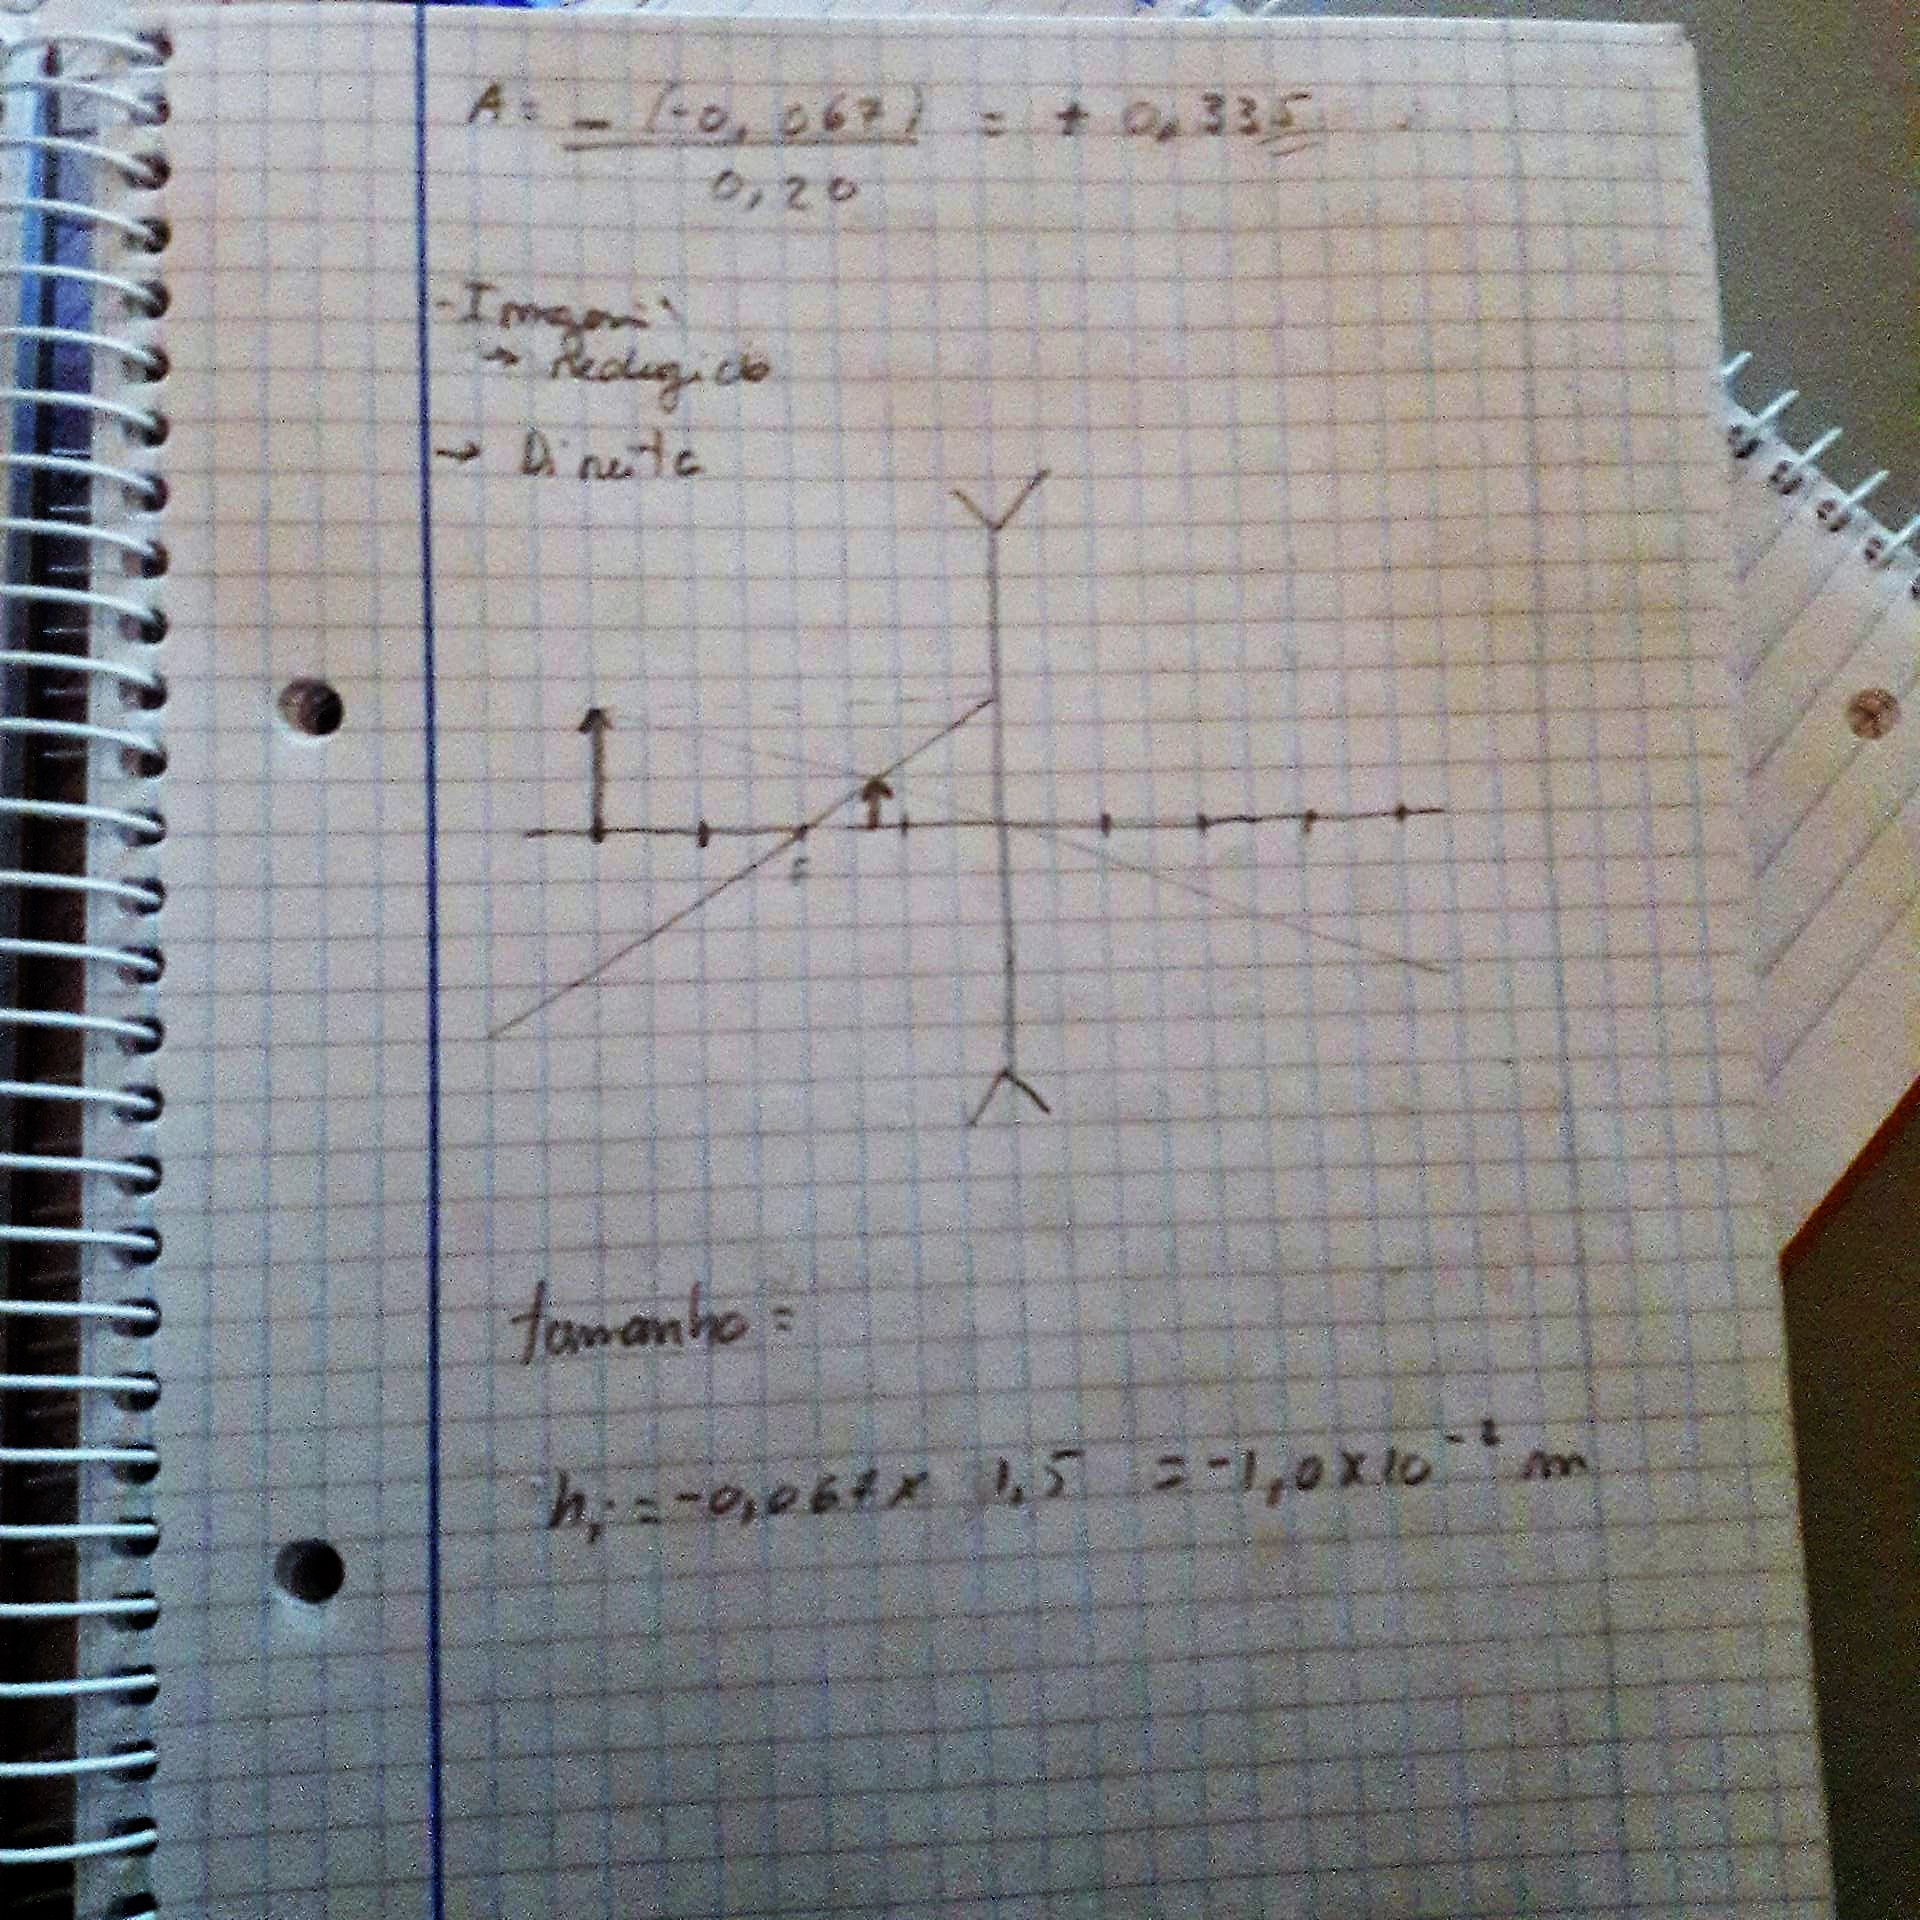 A = -(-0,067) = + 0,335
0,20
- Imagem:
→ Reduzida
→ Direita
F
tamanho =
hi = -0,067 x 1,5 = -1,0 x 10⁻² m